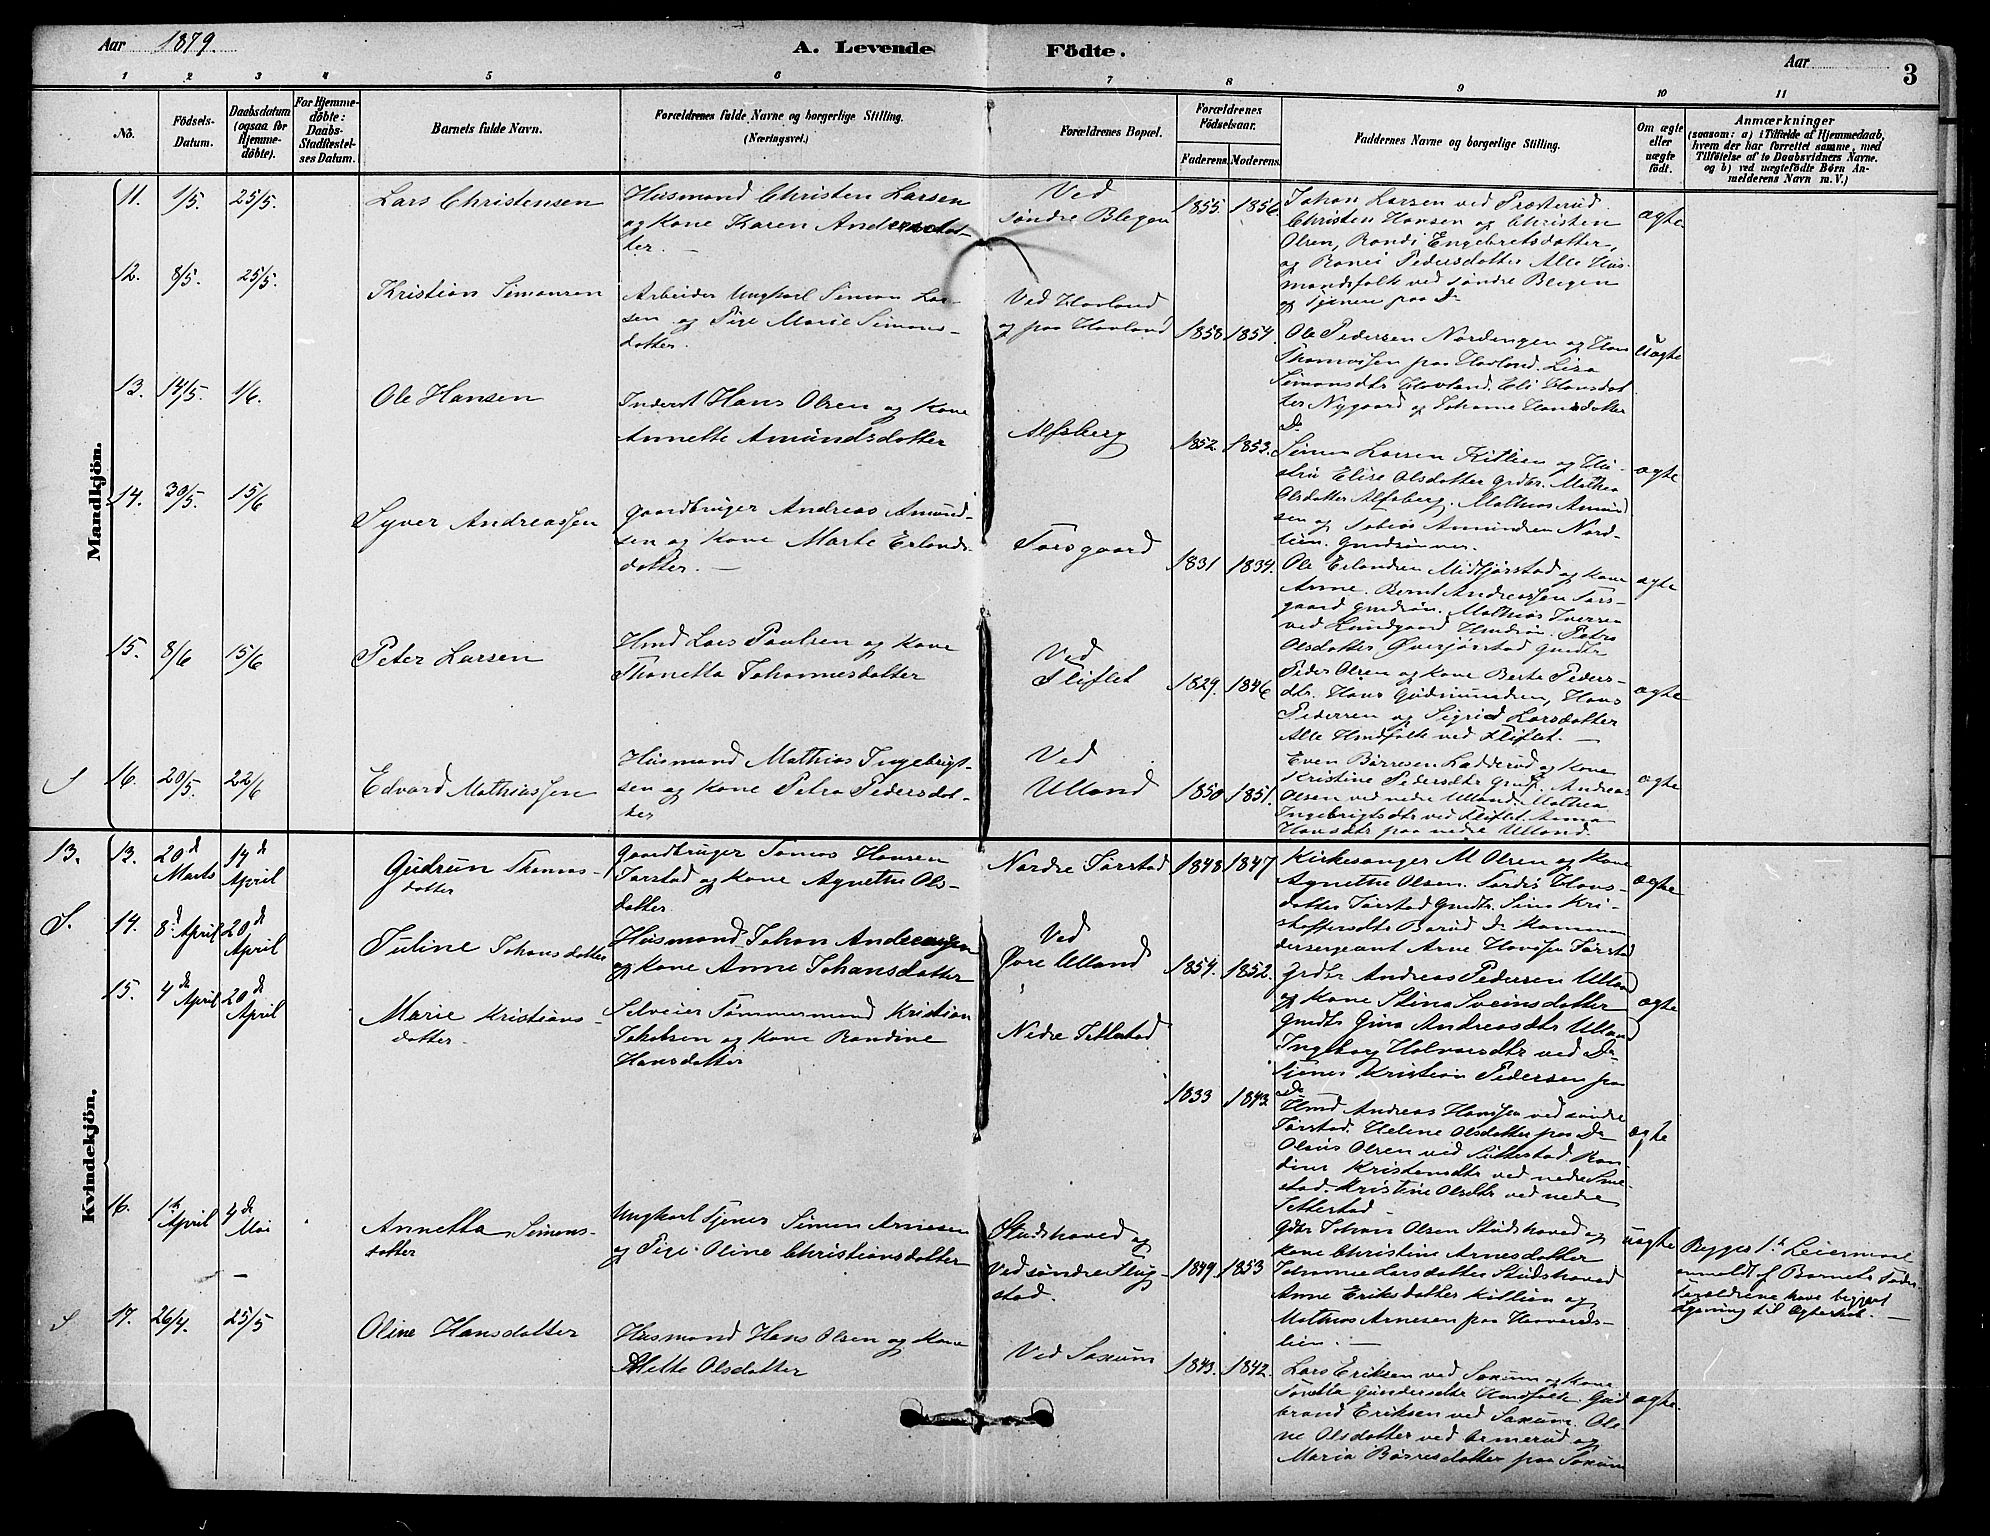 Aar 1879.
A. Levende Födte.
Aar
3
1 2 3 4 5 6 7 8 9 10 11
No.
Födsels-
Datum.
Daabsdatum
(ogsaa for
Hjemme-
döbte).
For Hjemme-
döbte:
Daabs-
Stadfæstel-
ses Datum.
Barnets fulde Navn.
Forældrenes fulde Navne og borgerlige Stilling.
(Næringsvei.)
Forældrenes Bopæl.
Forældrenes
Födselsaar.
Faderens. Moderens.
Faddernes Navne og borgerlige Stilling.
Om ægte
eller
uægte
födt.
Anmærkninger
(saasom: a) i Tilfælde af Hjemmedaab,
hvem der har forrettet samme, med
Tilföielse af to Daabsvidners Navne.
og b) ved uægtefödte Börn An-
melderens Navn m. V.)
Mandkjön.
11. 1/5. 25/5. Lars Christensen
Husmand Christen Larsen
og Kone Karen Andersdat-
ter.
Ved
søndre Blegen
1855. 1856.
Johan Larsen ved Præsterud.
Christen Hansen og Christen
Olsen, Randi Engebretsdatter,
og Ranei Pedersdatter Alle Hus-
mandsfolk ved søndre Blegen
og tjener paa Do
ægte
12. 8/5. 25/5. Kristian Simonsen
Arbeider Ungkarl Simon Lar-
sen og Pige Marie Simons-
datter.
Ved Hovland
og paa Hovland
1858 1854.
Ole Pedersen Nordengen og Hans
Thomassen paa Hovland. Lisa
Simonsdtr Hovland. Eli Hansdat
ter Nygaard og Johanne Hansdatter
Do
Uægte
13. 14/5. 1/6. Ole Hansen
Inderst Hans Olsen og Kone
Annette Amundsdatter
Alfsberg
1852. 1853.
Simen Larsen Kitlien og Hu-
stru Elise Olsdatter Grdbr. Mathea
Olsdatter Alfsberg. Mathias Amund
sen og Tobias Amundsen Nord-
lien. Gmdsønner.
ægte
14. 30/5. 15/6 Syver Andreassen
Gaardbruger Andreas Amund-
sen og Kone Marte Erlands-
datter. —
Torsgaard
1831 1834.
Ole Erlandsen Midtjørstad og Kone
Anne. Bernt Andreassen Tors-
gaard Gmdsøn. Mathias Iversen
ved Lundgaard Hmdsøn. Petra
Olsdatter Øverjørstad Gmdtr
ægte
15. 8/6 15/6 Peter Larsen
Hmd Lars Paulsen og Kone
Thonetta Johannesdatter
Ved
Fliflet
1829. 1846
Peder Olsen og Kone Berte Peders-
dtr. Hans Gudmundsen, Hans
Pedersen og Sigrid Larsdatter
Alle Hmdfolk ved Fliflet. —
ægte
S 16. 20/5. 22/6 Edvard Mathiassen
Husmand Mathias Ingebrigt-
sen og Kone Petra Pedersdat-
ter
Ved
Ulland
1850 1851.
Even Børresen Ladderud og Kone
Kristine Pedersdtr Gmdf. Andreas
Olsen ved nedre Ulland. Mathea
Ingebrigtsdtr ved Fliflet. Anna
Hansdtr paa nedre Ulland.
ægte
Kvindekjön.
13. 13. 20d
Marts 14d
April Gudrun Thomas-
datter
Gaardbruger Tomas Hansen
Jørstad og Kone Agnethe Ols-
datter
Nordre Jørstad
1848 1847
Kirkesanger M Olsen og Kone
Agnethe Olsen. Tordis Hans-
datter Jørstad Gmdtr. Sina Kri-
stoffersdtr Borud Do Komman
dersergeant Arne Hansen Jørstad
ægte
S. 14. 8d April 20d
April Juline Johansdatter
Husmand Johan Andreassen
og Kone Anne Johansdatter
Ved
Øvre Ulland
1854. 1852.
Grdbr Andreas Pedersen Ulland
og Kone Stina Sveinsdatter
Gmdtr Gina Andreasdtr Ulland
Ingeborg Halvorsdtr ved Do
tjener Kristian Pedersen paa
Do
ægte
15. 4de April 20d
April Marie Kristians-
datter.
Selveier Tømmermand Kristian
Jakobsen og Kone Randine
Hansdatter
Nedre Jettestad
1833 1843.
Hmd Andreas Hansen ved søndre
Jørstad. Helene Olsdatter paa Do
Olaus Olsen ved Sættestad. Ran-
dine Kristensdtr ved nedre Sme-
stad. Kristine Olsdtr ved nedre
Jettestad —
ægte
16. 1st
April 4de
Mai Annetta Simens-
datter
Ungkarl Tjener Simen Arnesen
og Pige Oline Christiansdatter
Studshoved og
Ved søndre Flug-
stad.
1849. 1853
Gdbr Johan Olsen Studshoved og
Kone Christine Arnesdatter
Johanne Larsdatter Studshoved
Anne Eriksdatter Kitlien og
Mathias Arnesen paa Haavards-
lien. —
uægte
Begges 1st Leiermaal
anmeldt af Barnets Fader
Forældrene have begjært
Lysning til Ægteskab. —
S 17. 26/4. 25/5 Oline Hansdatter
Husmand Hans Olsen og Kone
Mette Olsdatter
Ved Saxum
1843. 1842.
Lars Eriksen ved Saxum og Kone
Tonetta Gundersdtr Hmdfolk. Gud
brand Eriksen ved Saxum. Oli-
ne Olsdatter ved Ormerud og
Maria Børresdatter paa Saxum
ægte.